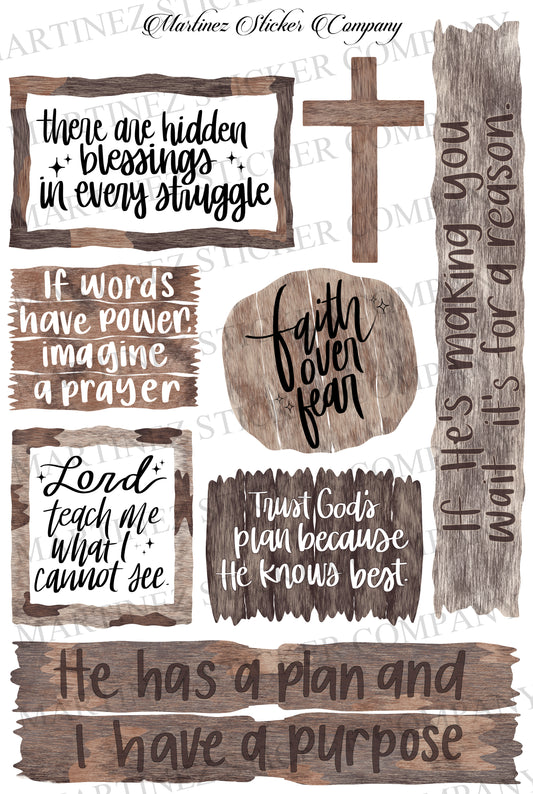 Martinez Sticker Company
MARTINEZ STICKER COMPANY
there are hidden
blessings
in every struggle
If words
have power,
imagine
a prayer
faith
over
fear
If He's making you
wait it's for a reason.
Lord
teach me
what I
cannot see.
Trust God's
plan because
He knows best.
He has a plan and
I have a purpose